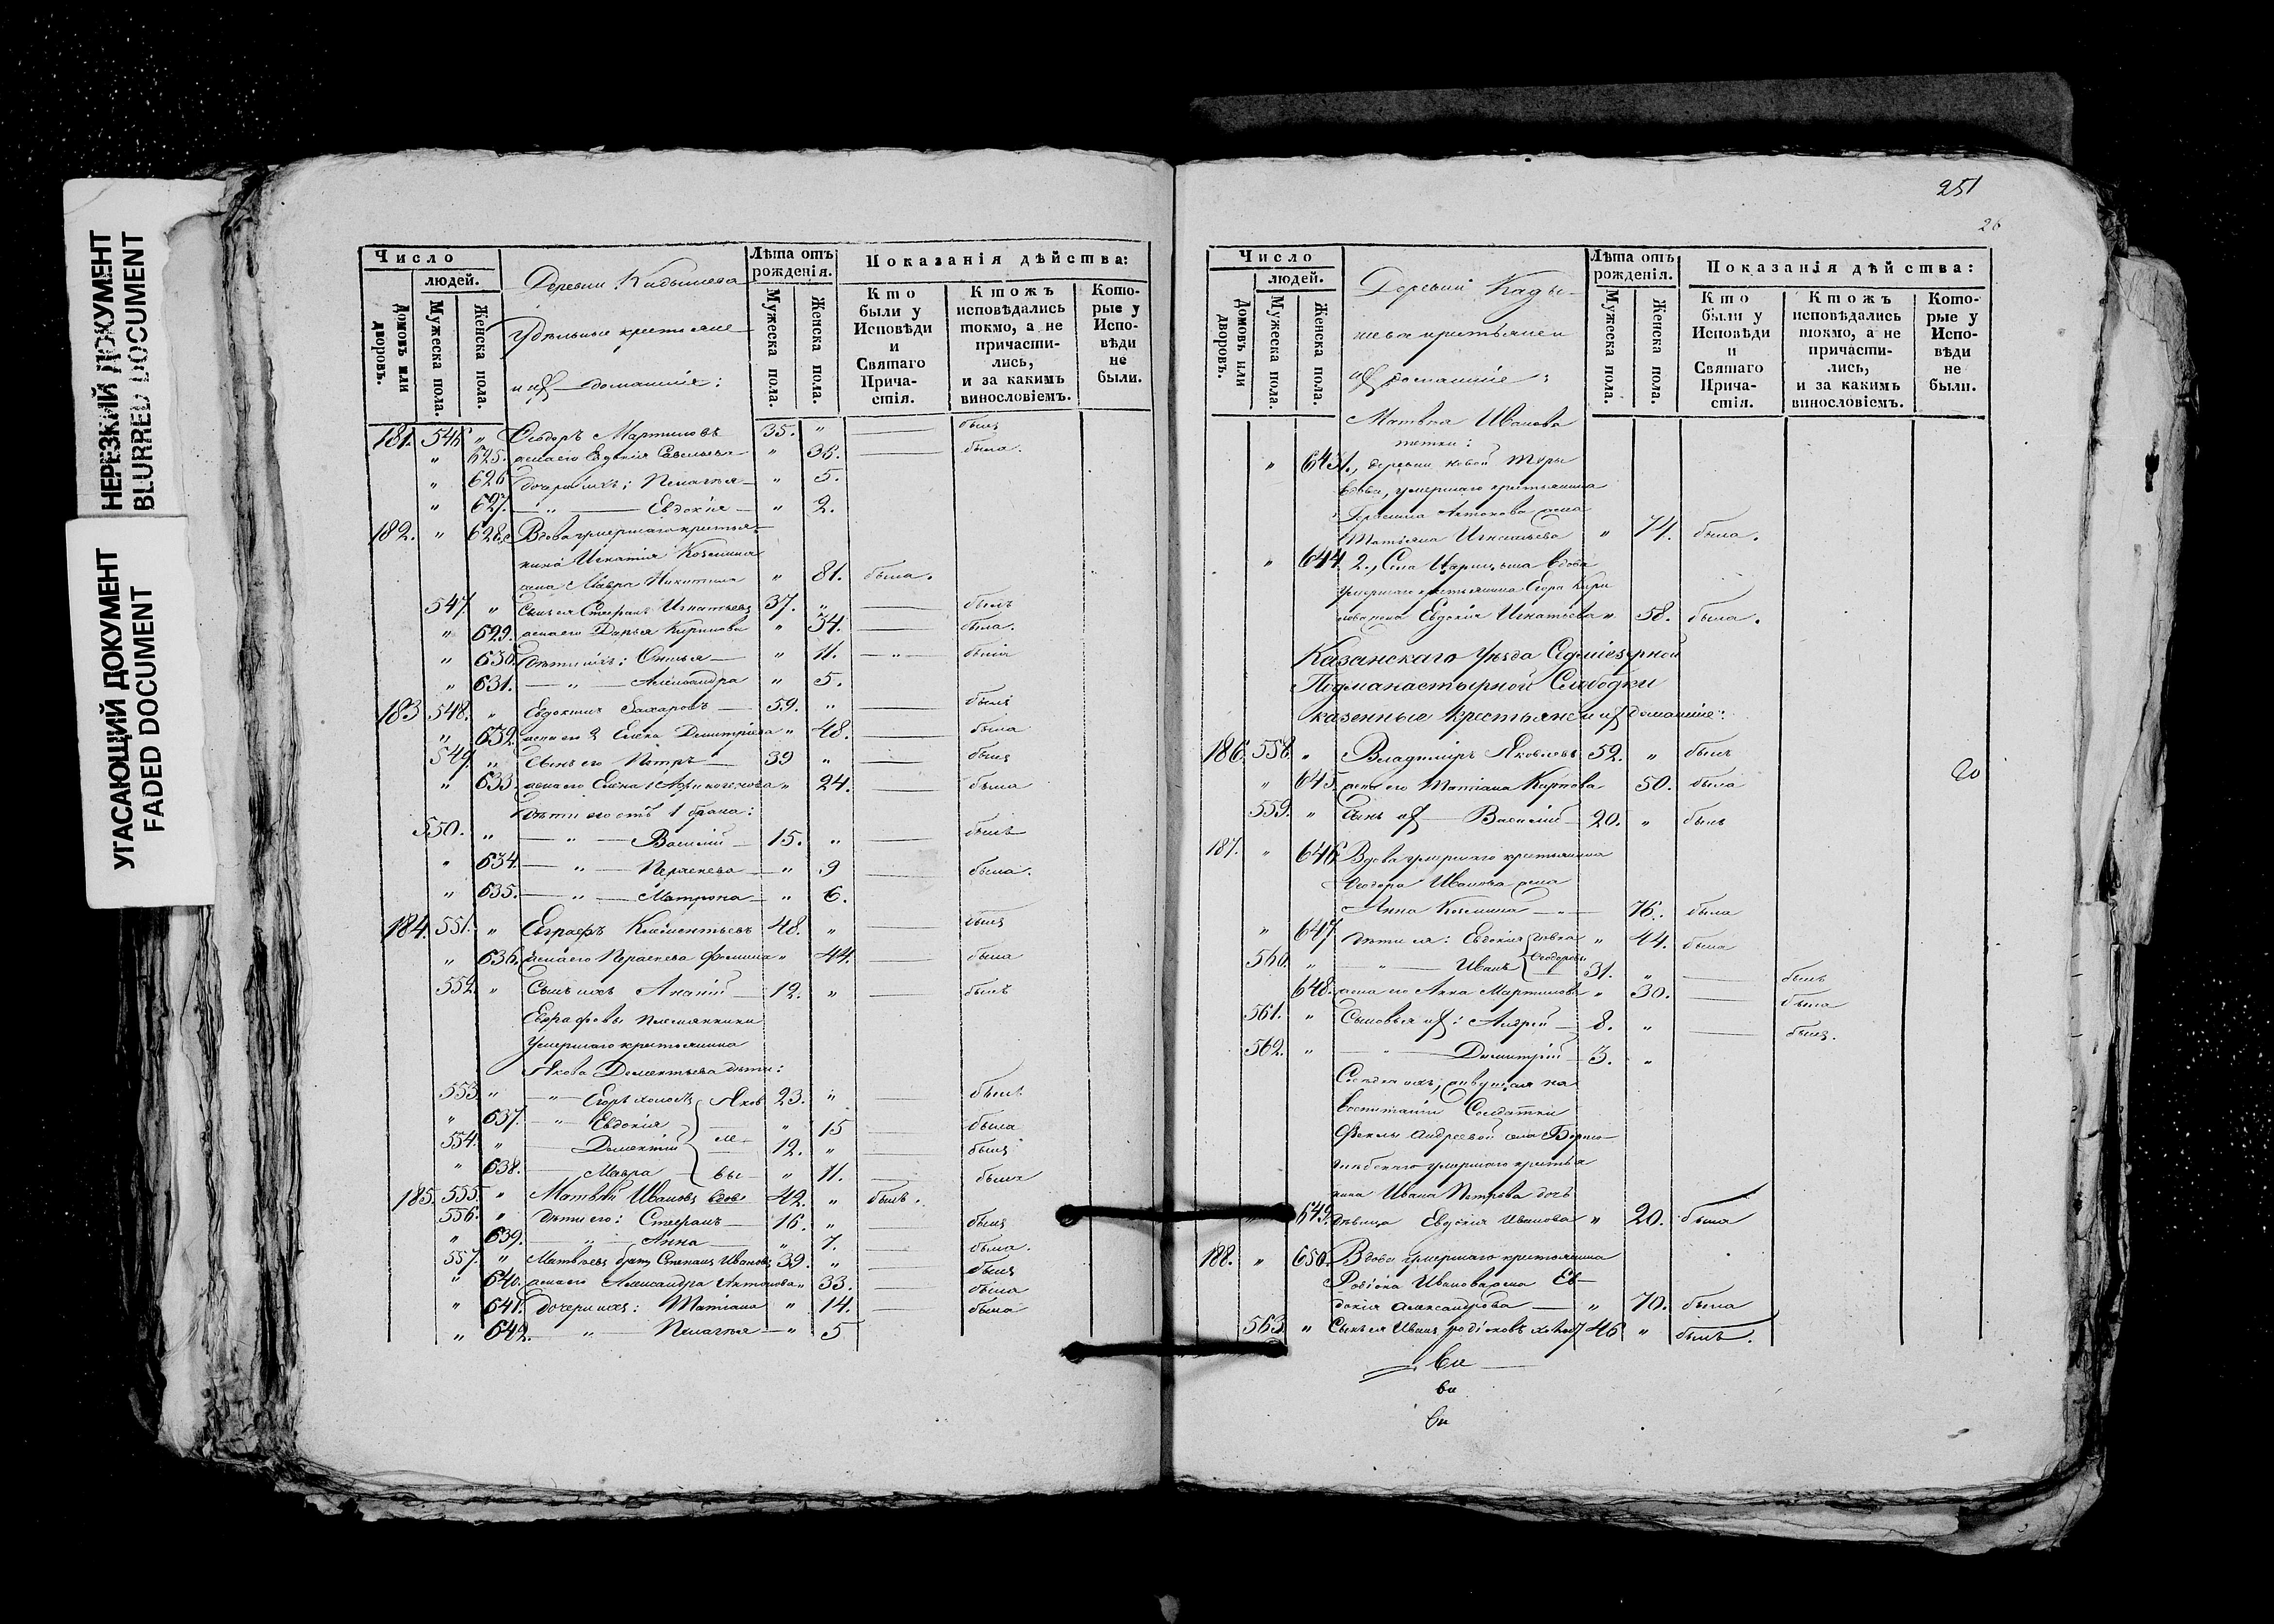 НЕРЕЗКИЙ ДОКУМЕНТ
BLURRED DOCUMENT
УГАСАЮЩИЙ ДОКУМЕНТ
FADED DOCUMENT
Число
людей.
Домовъ или дворовъ.
Мужеска пола.
Женска пола.
Деревни Кадышева
Удѣльные крестьяне
и ихъ домашніе:
Лѣта отъ рожденія.
Мужеска пола.
Женска пола.
Показанія дѣйства:
Кто были у Исповѣди и Святаго Причастія.
Ктожъ исповѣдались токмо, а не причастились, и за какимъ винословіемъ.
Которые у Исповѣди не были.
181. 546 " Ѳеодоръ Мартиновъ 35. " былъ
" 625. жена его Евдокія Савельева " 36. была.
" 626 дочери ихъ: Пелагья " 5.
" 627. " Евдокія " 2.
182. " 628. Вдова умершаго крестья-
нина Игнатія Козмина
жена Мавра Никитина " 81. была.
547 " Сынъ ея Стефанъ Игнатьевъ 37. " былъ
" 629. жена его Дарья Кирилова " 34. была.
" 630. дѣти ихъ: " 11. "
" 631. " Александра " 5.
183 548. " Евдокимъ Захаровъ 59. " былъ
" 632. жена его 2 Елена Димитріева " 48. была
549. " Сынъ его Петръ 39 " былъ
" 633. жена его Елена " 24. была
дѣти его отъ 1 брака:
550. " " Василій 15. " былъ
" 634. " Параскева " 9 была.
" 635. " Матрона " 6.
184. 551. " Евграфъ Климентьевъ 48. " былъ
" 636. жена его Параскева Фомина " 44. была
552. " Сынъ ихъ Ананій 12. " былъ
Евграфовы племянники
умершаго крестьянина
Якова Дементьева дѣти:
553. " " Егоръ холостъ Яков 23. " былъ
" 637. " Евдокія " 15 была
554. " Дементій ле 12. " былъ
" 638. Мавра вы " 11. была
185. 555. " Матвѣй Ивановъ вдов 42. " былъ.
556. " дѣти его: Стефанъ 16. " былъ
" 639. " Анна " 7. была.
557. " Матвѣевъ братъ Степанъ Ивановъ 39. " былъ
" 640. жена его Александра Антонова " 33. была
" 641. дочери ихъ: Татіана " 14. была
" 642. " Пелагья " 5
251
26
Число
людей.
Домовъ или дворовъ.
Мужеска пола.
Женска пола.
Деревни Кады-
шева крестьяне и
ихъ домашніе:
Лѣта отъ рожденія.
Мужеска пола.
Женска пола.
Показанія дѣйства:
Кто были у Исповѣди и Святаго Причастія.
Ктожъ исповѣдались токмо, а не причастились, и за какимъ винословіемъ.
Которые у Исповѣди не были.
Матвѣя Иванова
тетки:
" 643 1., деревни новой Туры
вдова, умершаго крестьянина
Герасима Антонова жена
Татьяна Игнатьева " 74. была.
" 644. 2., Села Царицына вдова
умершаго крестьянина Егора Кири
лова жена Евдокія Игнатьева " 58. была.
Казанскаго уѣзда Седміезерной
Подманастырной Слободки
казенные крестьяне и ихъ домашніе:
186. 558. " Владиміръ Яковлевъ 52. " былъ
" 645. жена его Татіана Карпова 50. была
559. " Сынъ ихъ Василій 20. " былъ
187. " 646. Вдова умершаго крестьянина
Ѳеодора Иванова жена
Анна Козмина 76. была
" 647. дѣти ея: Евдокія дѣвка " 44. была
560. " " Иванъ Ѳеодоровы 31. " былъ
648. жена его Анна Мартинова " 30. была
561. " Сыновья ихъ: Андрей 8. " былъ.
562. " " Димитрій 3. "
живущая на
воспитаніи Солдатки
Ѳеклы Андреевой
умершаго крестья
нина Ивана Петрова дочь
649. дѣвица Евдокія Иванова " 20. была
188. " 650. Вдова умершаго крестьянина
Родіона Иванова жена Ев-
докія Александрова " 70. была
563. " Сынъ ея Иванъ Родіоновъ холост 46 " былъ.